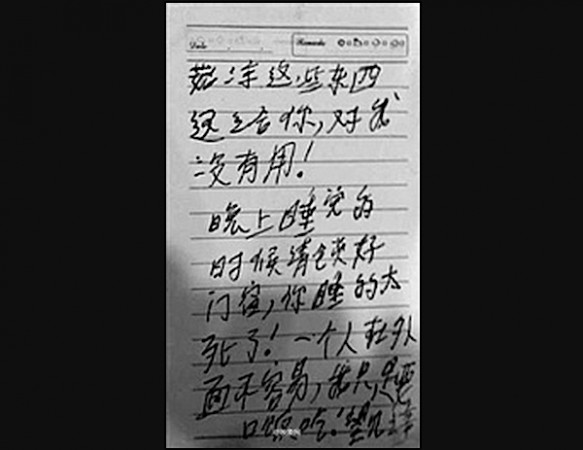 Date
Remarks
菇凉这些东西
给你,对我
没有用!
晚上睡觉的
时候请锁好
门窗,你睡的太
死了!一个人在外
面不容易,我只是要
口饭吃!望见谅